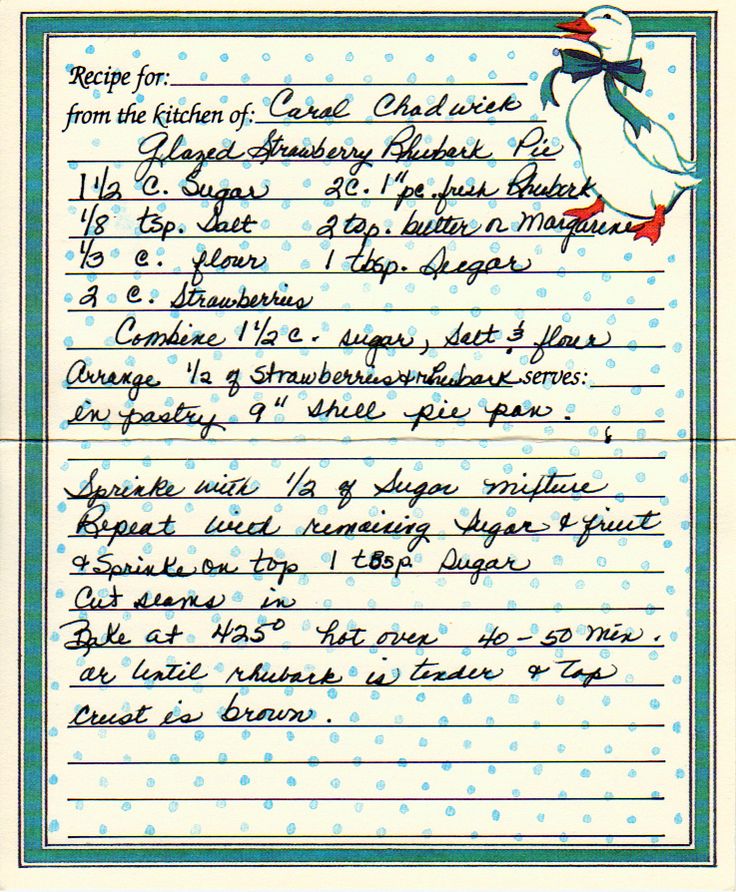 Recipe for:
from the kitchen of: Carol Chadwick
Glazed Strawberry Rhubarb Pie
1 1/2 c. Sugar 2 c. 1" pc. fresh Rhubarb
1/8 tsp. Salt 2 tsp. butter or Margarine
1/3 c. flour 1 tbsp. Sugar
2 c. Strawberries
Combine 1 1/2 c. sugar, salt & flour
Arrange 1/2 of Strawberries & rhubark serves:
in pastry 9" shell pie pan.
Sprinke with 1/2 of Sugar mixture
Repeat with remaining Sugar & fruit
& Sprinke on top 1 tbsp. Sugar
Cut seams in
Bake at 425° hot oven 40-50 min.
or until rhubark is tender & top
crust is brown.